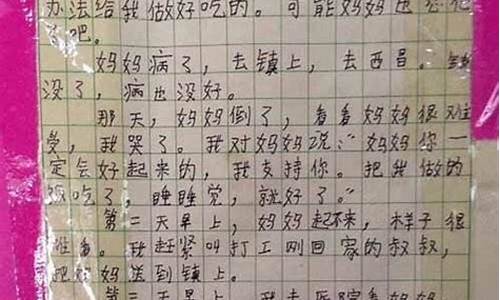 办法给我做好吃的。可能妈妈也想他
了吧。
妈妈病了，去镇上，去西昌。钱
没了，病也没好。
那天，妈妈倒了，看看妈妈很难
受，我哭了。我对妈妈说：“妈妈你一
定会好起来的，我支持你。把我做的
饭吃了，睡睡觉，就好了。”
第二天早上，妈妈起不来，样子很
难看。我赶紧叫打工刚回家的叔叔，
把妈妈送到镇上。
第三天早上，我去医院看妈妈